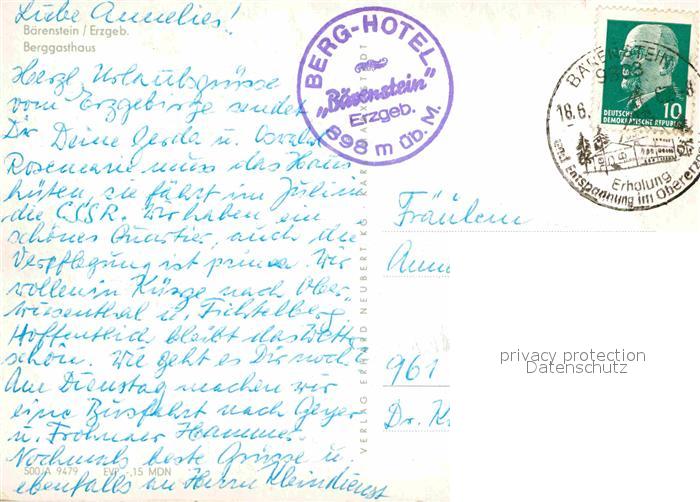 Liebe Annelies!
Bärenstein / Erzgeb.
Berggasthaus
Herzl. Urlaubsgrüsse
vom Erzgebirge sendet
Dir Deine Gerda u.
Rosemarie muss das Haus
hüten, sie fährt im Juli in
die ČSSR. Wir haben ein
schönes Quartier, auch die
Verpflegung ist prima. Wir
wollen in Kürze nach Ober-
wiesenthal u. Fichtelberg.
Hoffentlich bleibt das Wetter
schön. Wie geht es Dir noch?
Am Dienstag machen wir
eine Busfahrt nach Geyer
u. Frohnauer Hammer.
Nochmals beste Grüsse u.
ebenfalls an Herrn Kleindienst
500/A 9479 EVP -,15 MDN
BERG-HOTEL
„Bärenstein"
Erzgeb.
898 m üb. M.
VERLAG ERHARD NEUBERT KG
BÄRENSTEIN
18.6.
Erholung
und Entspannung im Obererz
DEUTSCHE
DEMOKRATISCHE REPUBLIK
10
Fräulein
Anne
961
Dr. K
privacy protection
Datenschutz